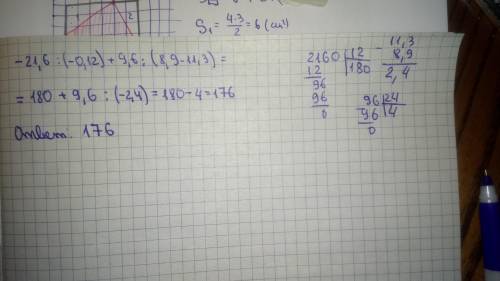 S₁ = 4·3/2 = 6 (см²)
-21,6 : (-0,12) + 9,6 : (8,9-11,3) =
= 180 + 9,6 : (-2,4) = 180 - 4 = 176
Ответ. 176
2160 | 12
12 | 180
96
96
0
- 11,3
8,9
2,4
96 | 24
96 | 4
0